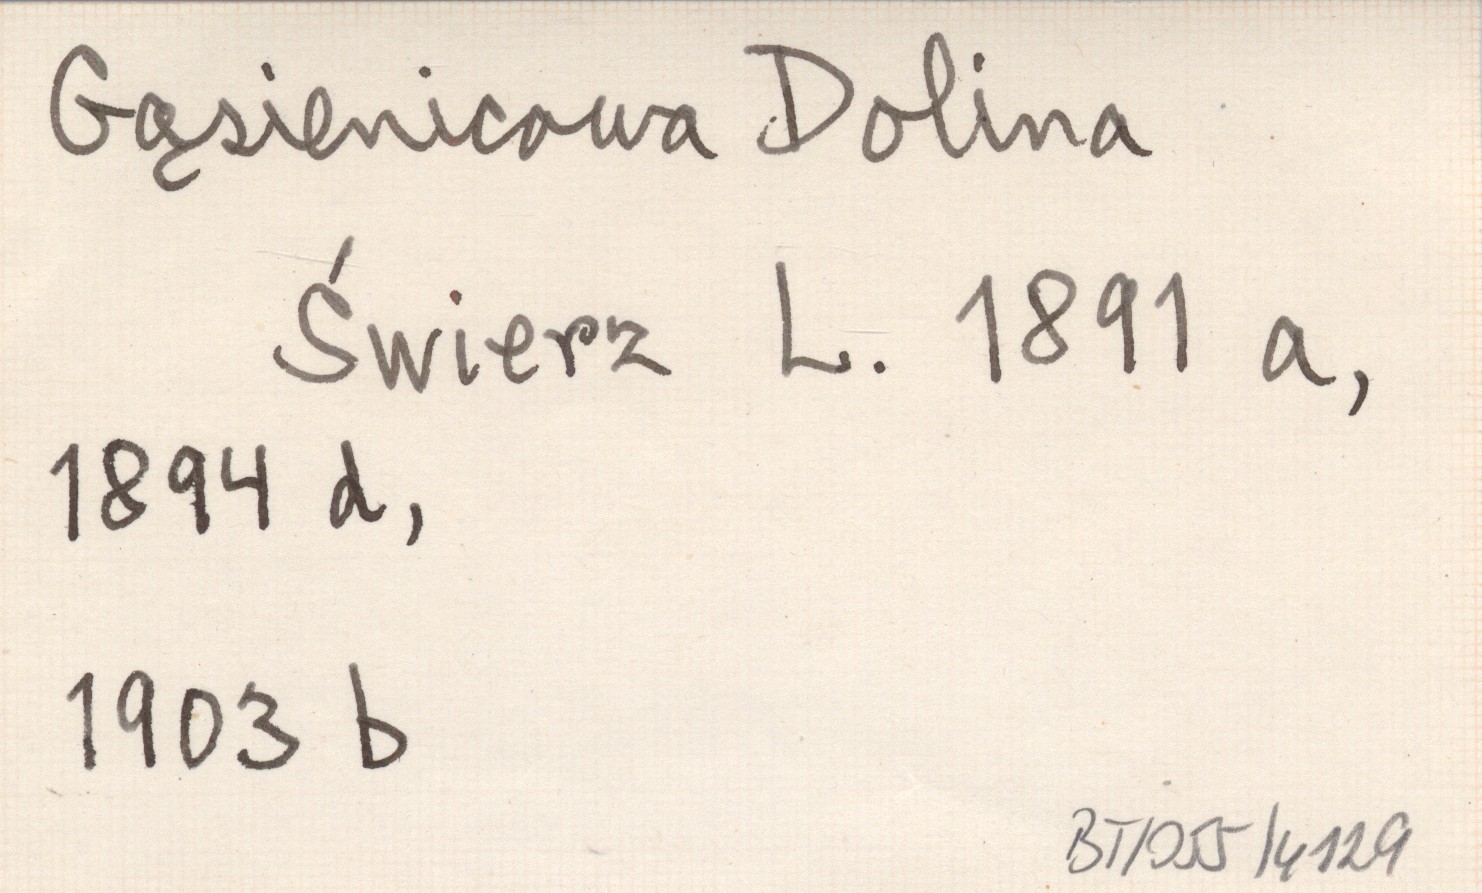 Gąsienicowa Dolina
Świerz L. 1891 a,
1894 d,
1903 b
BT/055/4129